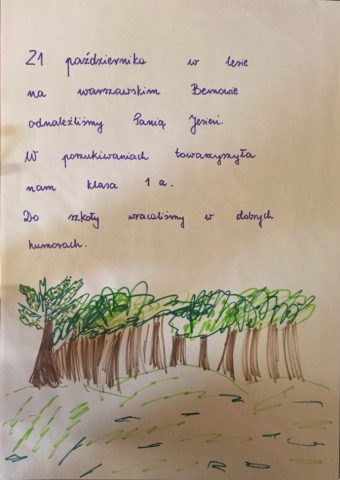 21 października w lesie
na warszawskim Bemowie
odnaleźliśmy Panią Jesień.
W poszukiwaniach towarzyszyła
nam klasa 1 a.
Do szkoły wracaliśmy w dobrych
humorach.